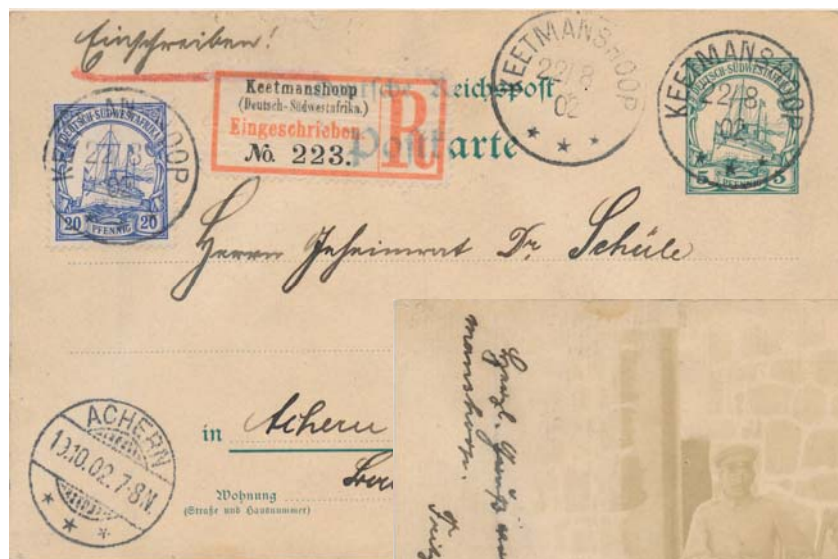 Einschreiben!
Keetmanshoop
(Deutsch-Südwestafrika.)
Eingeschrieben
No. 223.
R
Deutsche Reichspost
Postkarte
KEETMANSHOOP
22/8
02
KEETMANSHOOP
22/8
02
DEUTSCH-SÜDWESTAFRIKA
5 PFENNIG 5
KEETMANSHOOP
22/8
DEUTSCH-SÜDWESTAFRIKA
20 PFENNIG 20
Herrn Geheimrat Dr. Schüle
in Achern
Wohnung
(Straße und Hausnummer)
ACHERN
19.10.02.7-8N.
Herzl. Grüße aus
manshoop.